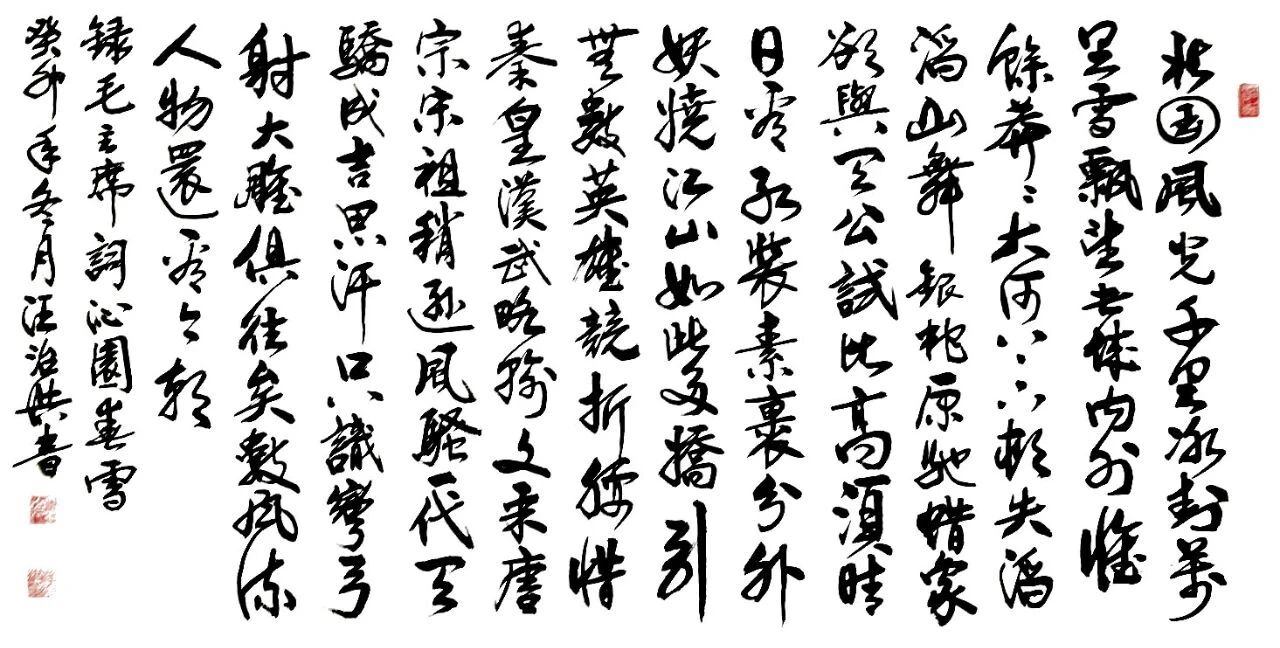 北国風光千里冰封萬
里雪飄望长城内外惟
餘莽〻大河上下頓失滔
滔山舞銀蛇原馳蜡象
欲與天公試比高須晴
日看紅裝素裹分外
妖嬈江山如此多嬌引
無數英雄競折腰惜
秦皇漢武略輸文采唐
宗宋祖稍遜風騷一代天
驕成吉思汗只識彎弓
射大雕俱往矣數風流
人物還看今朝
録毛主席詞沁園春雪
癸卯年冬月汪治洪書